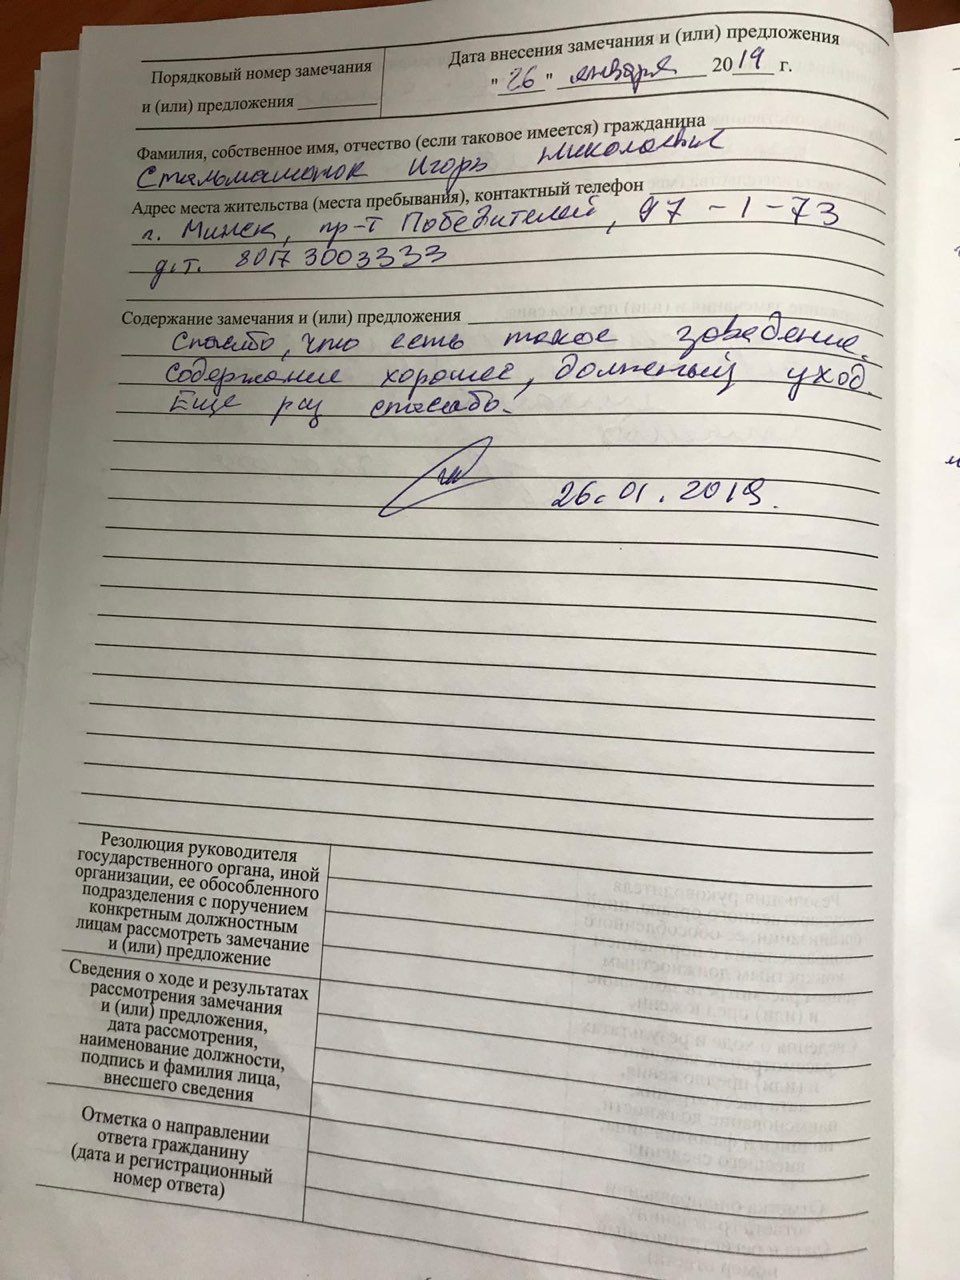 Порядковый номер замечания
и (или) предложения
Дата внесения замечания и (или) предложения
"26" января 2019 г.
Фамилия, собственное имя, отчество (если таковое имеется) гражданина
Игорь
Адрес места жительства (места пребывания), контактный телефон
г. Минск, пр-т Победителей, 97-1-73
д.т. 8017 3003333
Содержание замечания и (или) предложения
Спасибо, что есть такое заведение.
Содержание хорошее, должный уход.
Еще раз спасибо.
26.01.2019.
Резолюция руководителя
государственного органа, иной
организации, ее обособленного
подразделения с поручением
конкретным должностным
лицам рассмотреть замечание
и (или) предложение
Сведения о ходе и результатах
рассмотрения замечания
и (или) предложения,
дата рассмотрения,
наименование должности,
подпись и фамилия лица,
внесшего сведения
Отметка о направлении
ответа гражданину
(дата и регистрационный
номер ответа)